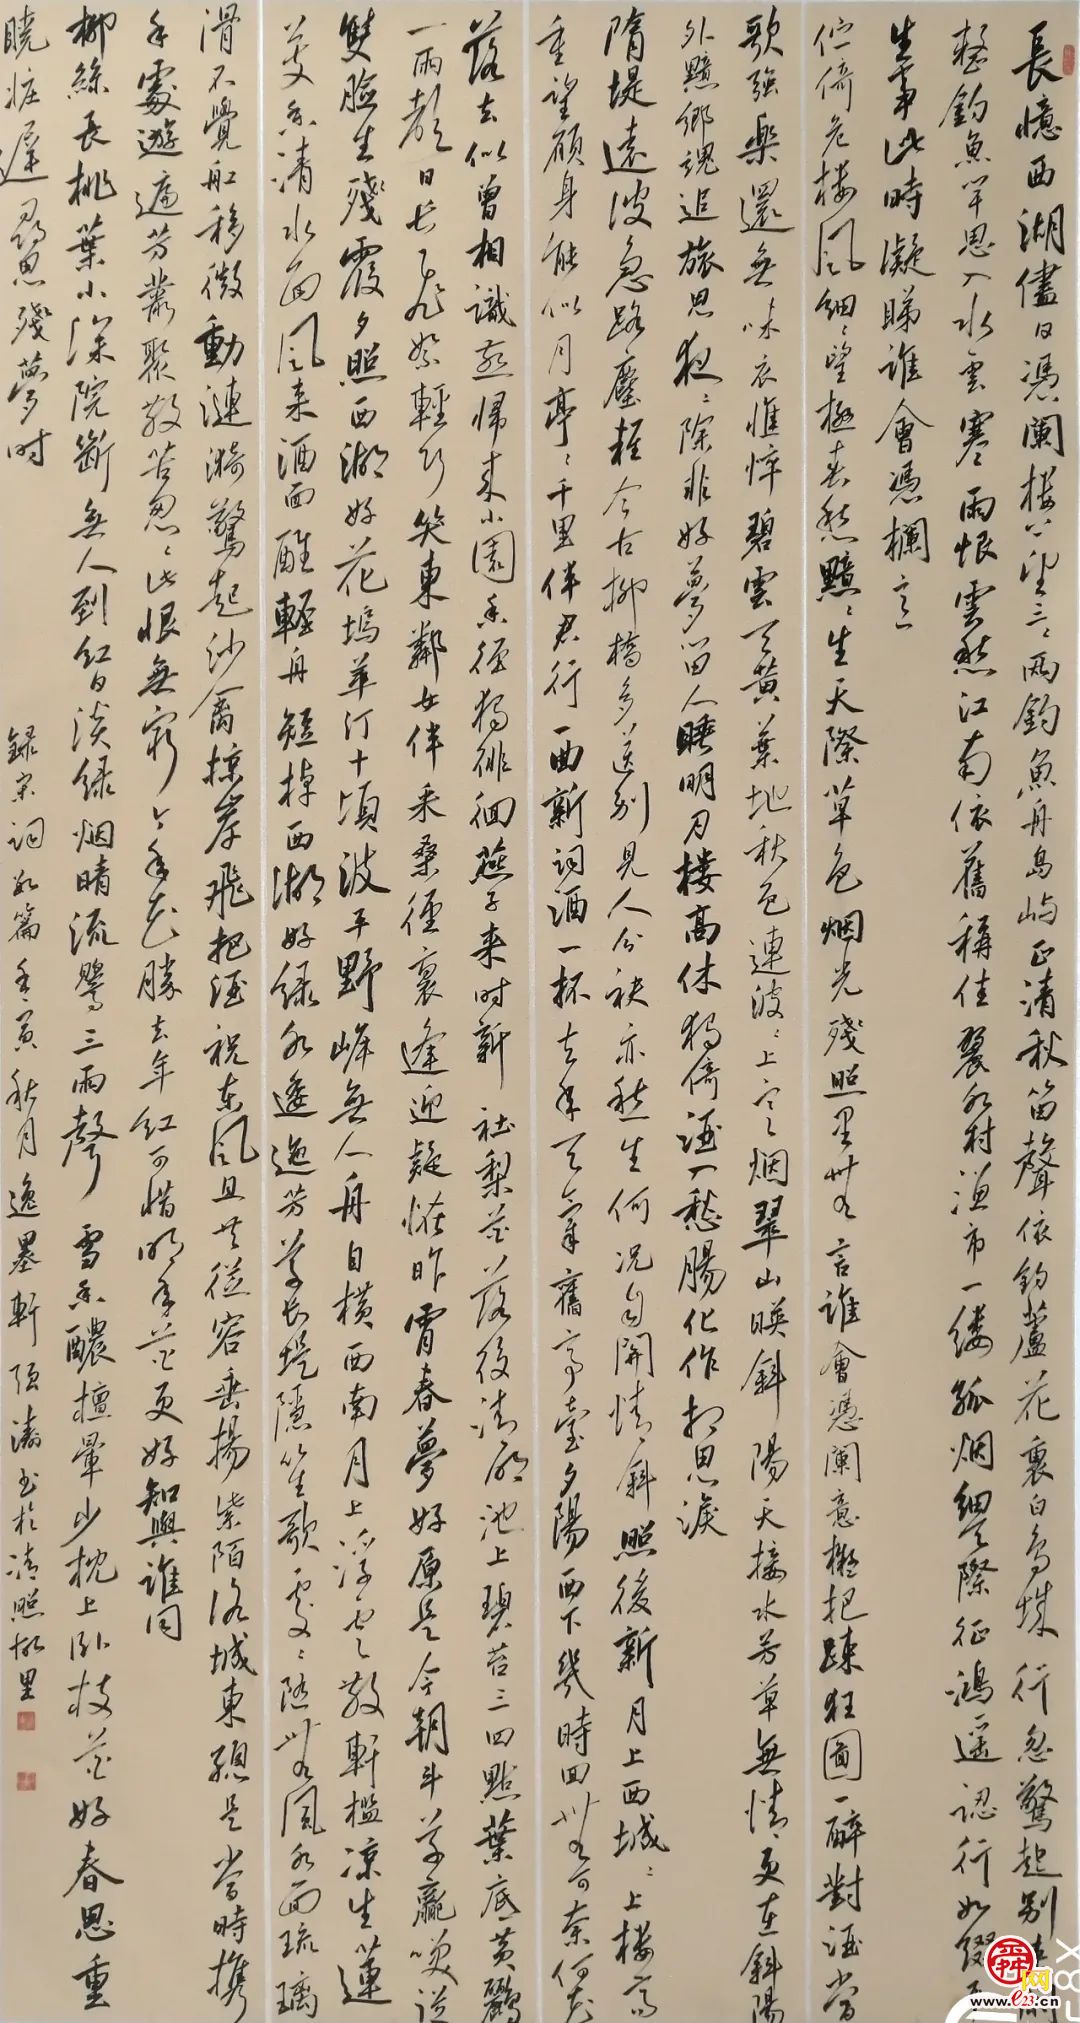 長憶西湖儘日憑闌樓上望三三兩兩釣魚舟島嶼正清秋笛聲依約蘆花裏白鳥成行忽驚起別來閒
整釣魚竿思入水雲寒 雨恨雲愁江南依舊稱佳麗水村漁市一縷孤烟細天際征鴻遥認行如綴平
生事此時凝睇誰會憑欄意
伫倚危楼風細細望極春愁黯黯生天際草色烟光殘照里無言誰會憑闌意擬把踈狂圖一醉對酒當
歌强樂還無味衣 憔悴 碧雲天黄葉地秋色連波波上寒烟翠山映斜陽天接水芳草無情更在斜陽
外黯鄉魂追旅思夜夜除非好夢留人睡明月楼高休獨倚酒入愁腸化作相思淚
隋堤遠波急路塵輕今古柳橋多送別見人分袂亦愁生何况自關情斜照後新月上西城城上楼高
重望願身能似月亭亭千里伴君行 一曲新詞酒一杯去年天氣舊亭臺夕陽西下幾時回無可奈何花
落去似曾相識燕歸來小園香徑獨徘徊 燕子來时新社梨花落後清明池上碧苔三四點葉底黄鸝
一兩聲日長飛絮輕巧笑東鄰女伴采桑徑裏逢迎疑怪昨宵春夢好原是今朝斗草贏笑從
雙臉生 殘霞夕照西湖好花塢苹汀十頃波平野岸無人舟自横西南月上浮雲散軒檻凉生蓮
芰香清水面風来酒面醒 輕舟短棹西湖好绿水逶迤芳草長堤隱隱笙歌處處隨無風水面琉璃
滑不覺船移微動漣漪驚起沙禽掠岸飛 把酒祝东風且共從容垂楊紫陌洛城東總是當時携
手處遊遍芳叢聚散苦匆匆此恨無窮今年花勝去年红可惜明年花更好知與誰同
柳絲長桃葉小深院斷無人到红日淡绿烟晴流鶯三兩聲 雪香醲檀暈少枕上卧枝花好春思重
曉妝遲尋思殘夢时
録宋詞數篇 秋月逸墨軒 張濤书於清照故里
舜网
www.e23.cn